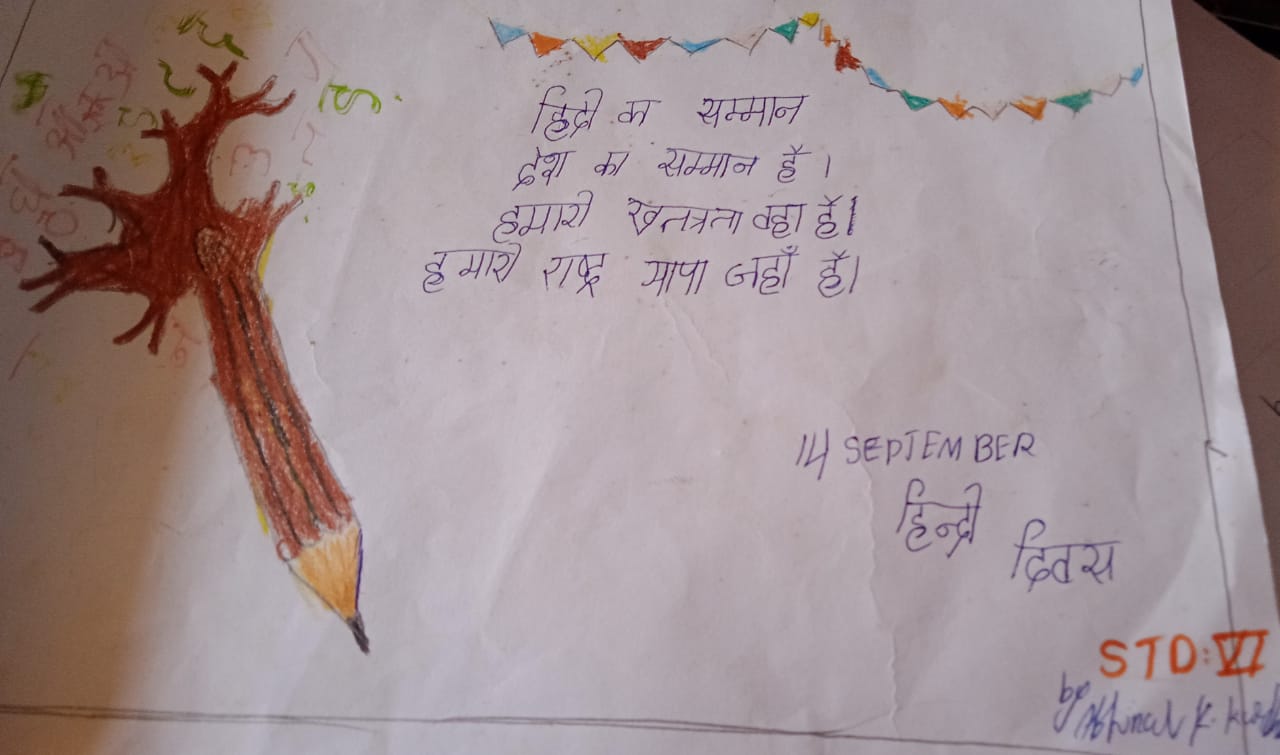 हिंदी का सम्मान
देश का सम्मान है ।
हमारी स्वतत्रता वहा हैं।
हमारी राष्ट्र भाषा जहाँ हैं।
14 SEPTEMBER
हिन्दी
दिवस
STD: VI
by